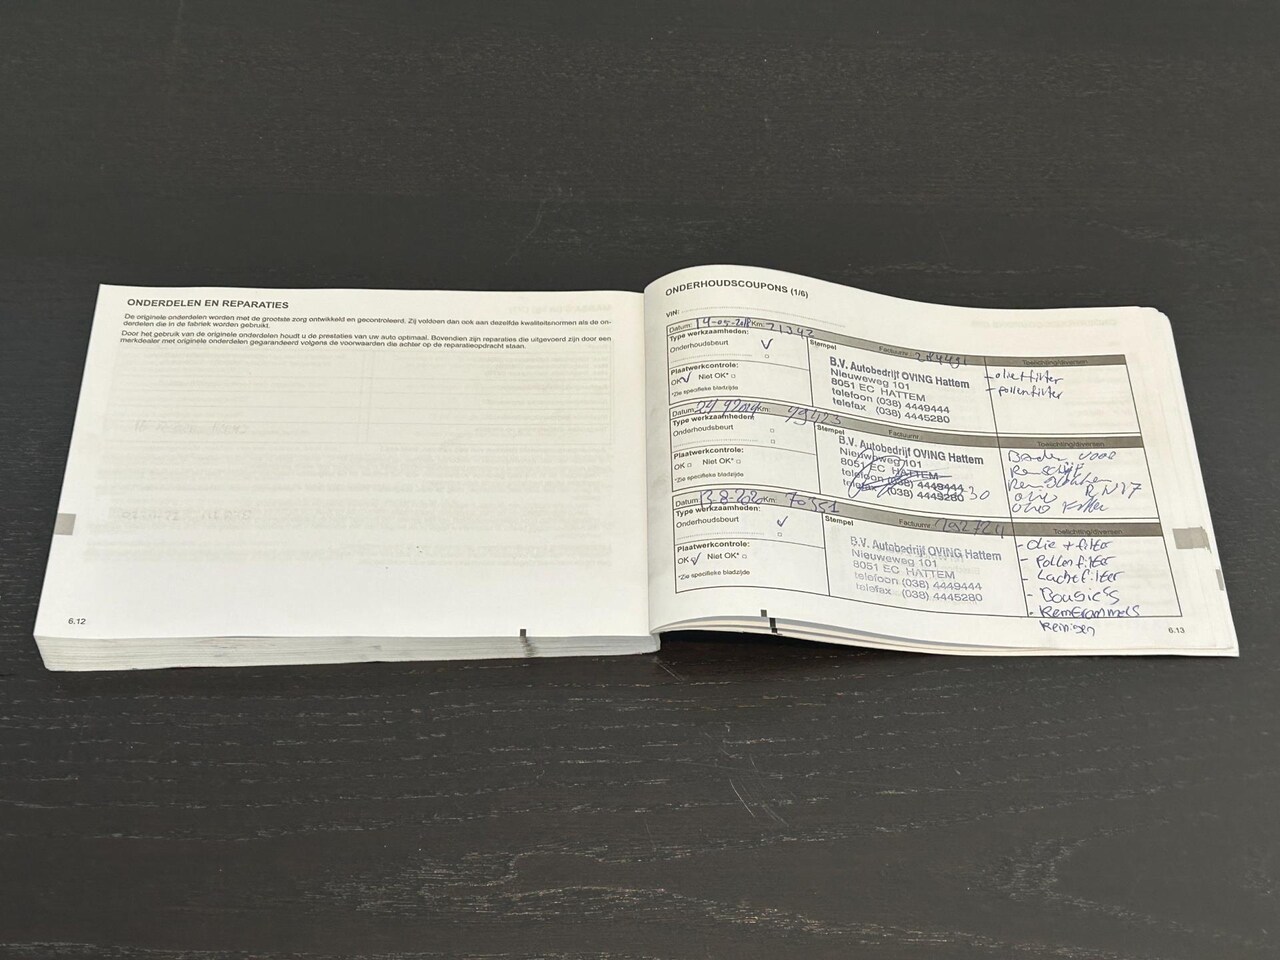 ONDERDELEN EN REPARATIES
De originele onderdelen worden met de grootste zorg ontwikkeld en gecontroleerd. Zij voldoen dan ook aan dezelfde kwaliteitsnormen als de on-
derdelen die in de fabriek worden gebruikt.
Door het gebruik van de originele onderdelen houdt u de prestaties van uw auto optimaal. Bovendien zijn reparaties die uitgevoerd zijn door een
merkdealer met originele onderdelen gegarandeerd volgens de voorwaarden die achter op de reparatieopdracht staan.
6.12
ONDERHOUDSCOUPONS (1/6)
VIN:
Datum: 14-05-2018 Km: 21342 Factuurnr.:
Type werkzaamheden: Stempel Toelichting/diversen
Onderhoudsbeurt ✓
Plaatwerkcontrole:
OK ✓ Niet OK*
*Zie specifieke bladzijde
B.V. Autobedrijf OVING Hattem
Nieuweweg 101
8051 EC HATTEM
telefoon (038) 4449444
telefax (038) 4445280
- olie+filter
- pollenfilter
Datum: Km: 49423 Factuurnr.:
Type werkzaamheden: Stempel Toelichting/diversen
Onderhoudsbeurt
Plaatwerkcontrole:
OK Niet OK*
*Zie specifieke bladzijde
B.V. Autobedrijf OVING Hattem
Nieuweweg 101
8051 EC HATTEM
telefoon (038) 4449444
telefax (038) 4445280
voor
RN17
Datum: 13-8-2020 Km: 70351 Factuurnr.: 292724
Type werkzaamheden: Stempel Toelichting/diversen
Onderhoudsbeurt ✓
Plaatwerkcontrole:
OK ✓ Niet OK*
*Zie specifieke bladzijde
B.V. Autobedrijf OVING Hattem
Nieuweweg 101
8051 EC HATTEM
telefoon (038) 4449444
telefax (038) 4445280
- Olie + filter
- Pollenfilter
- Luchtfilter
- Bougies
- Remtrommels
Reinigen
6.13